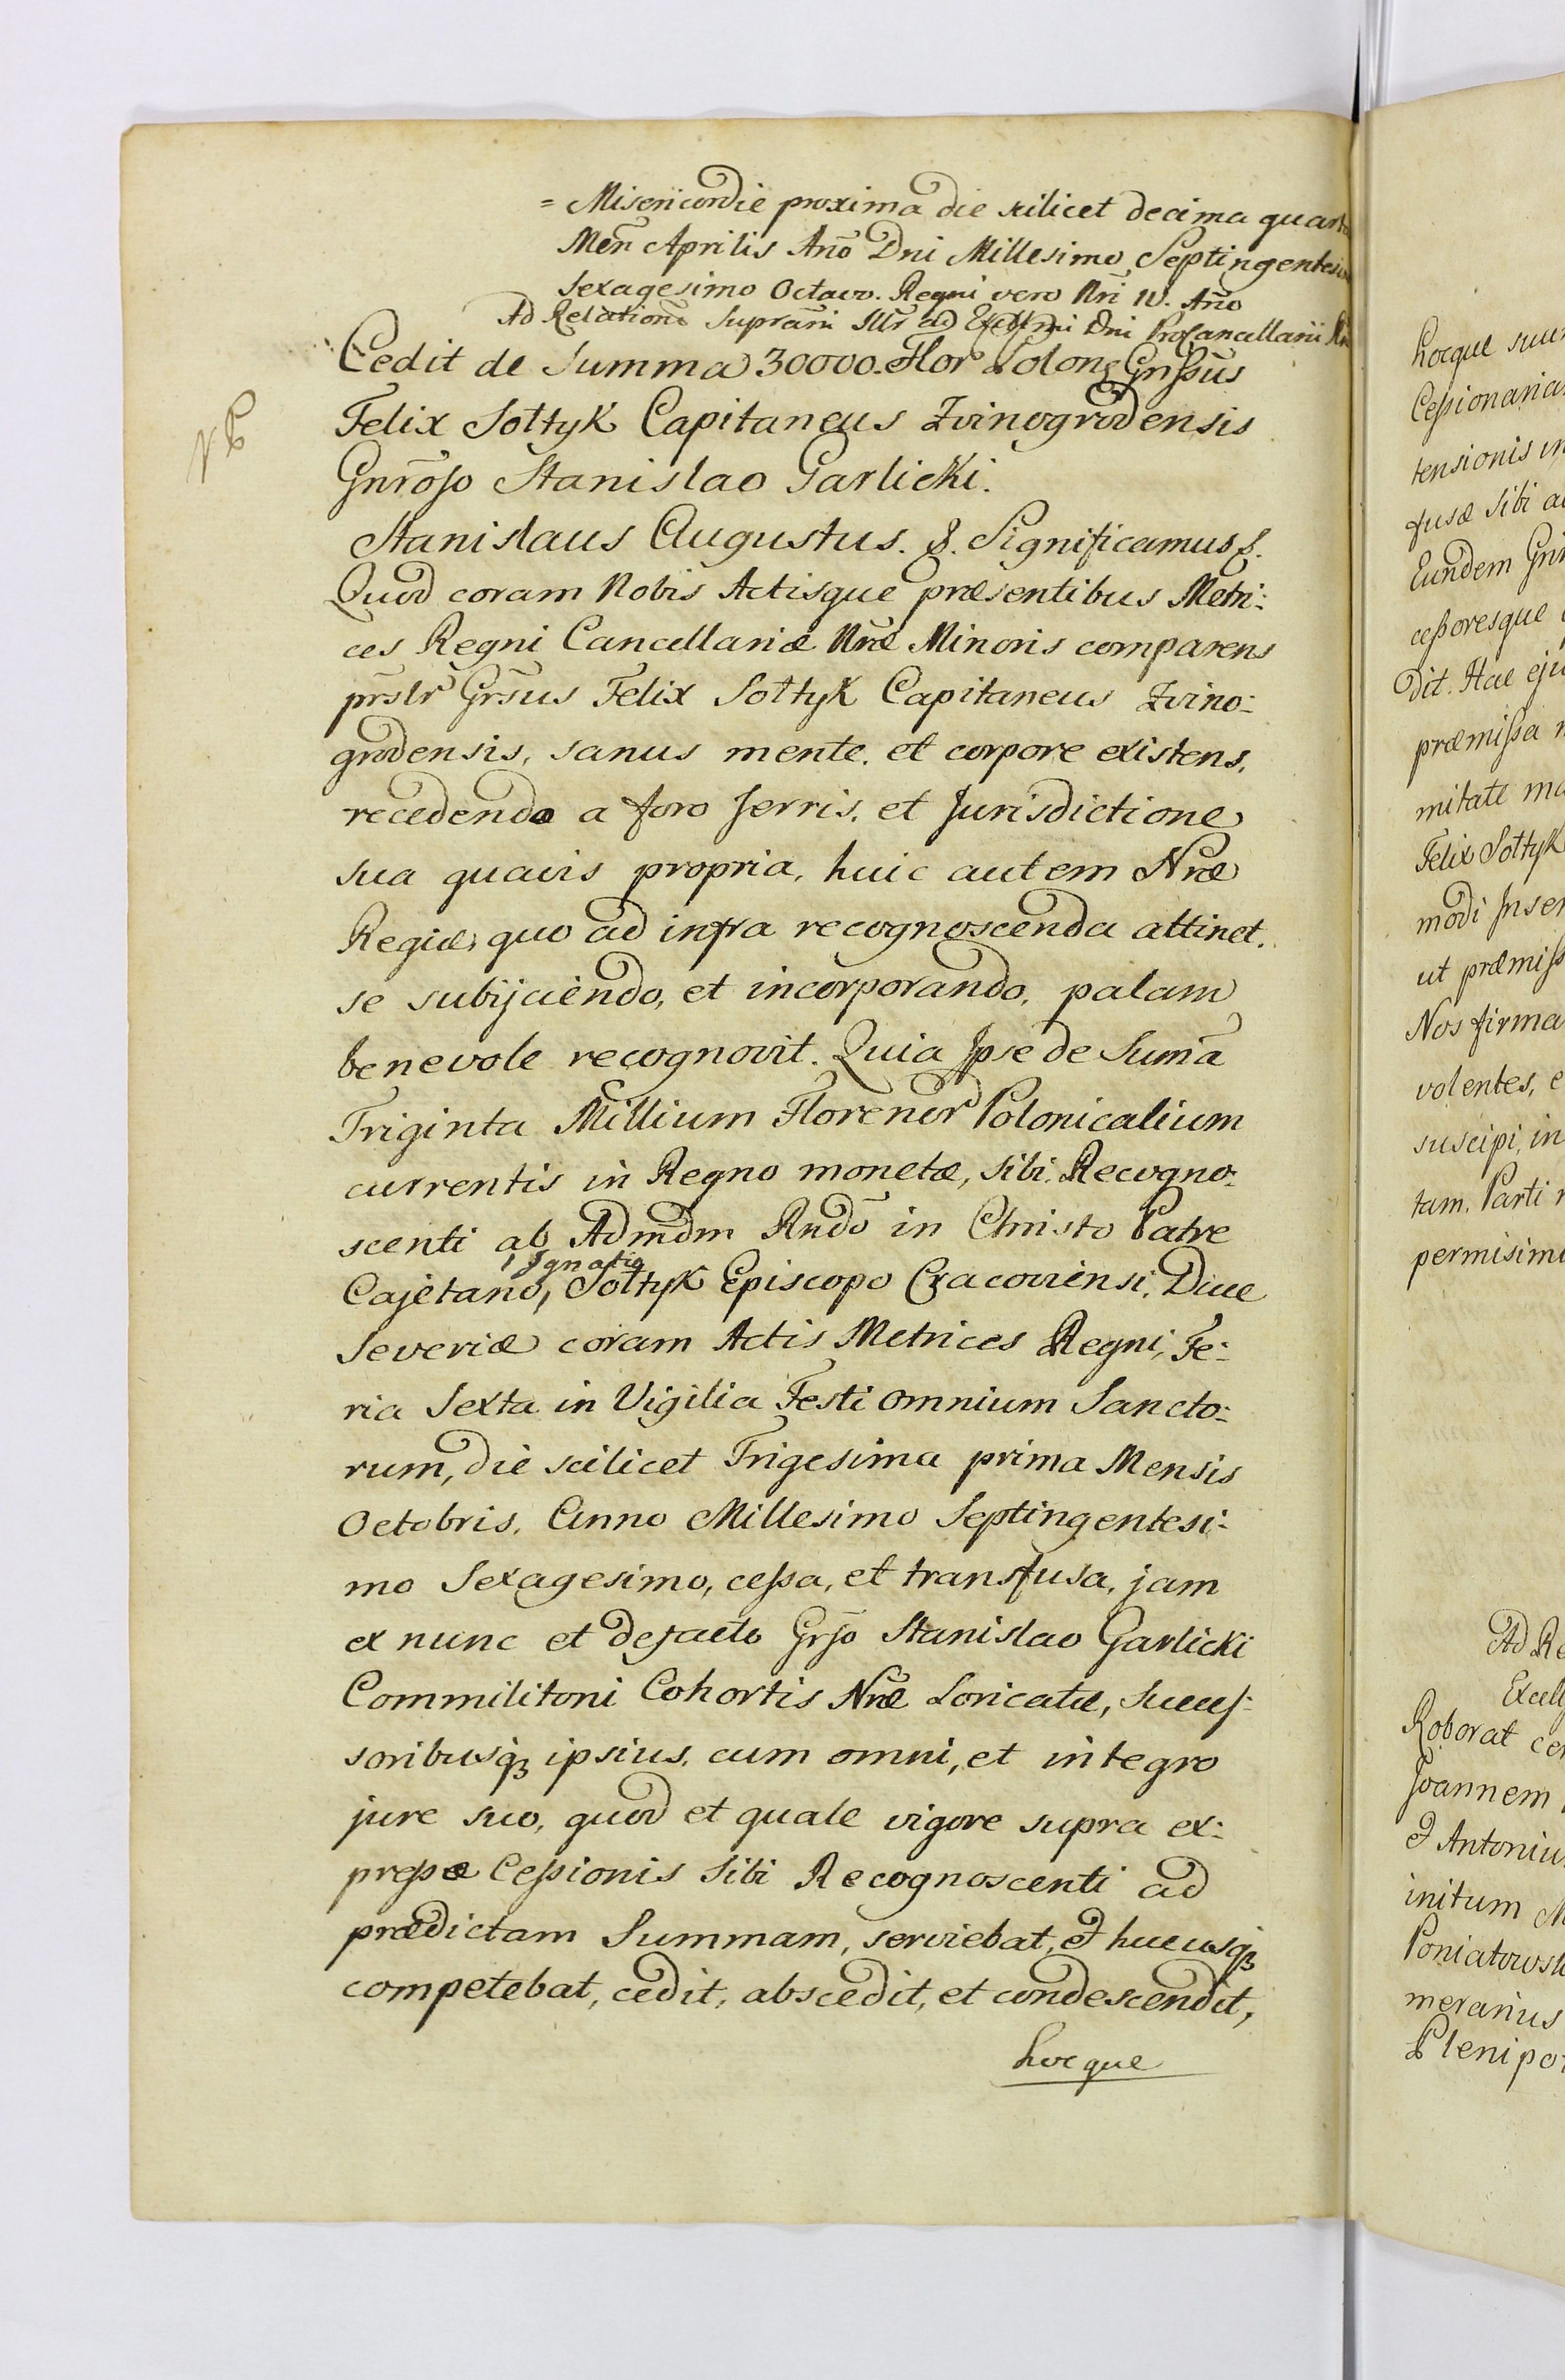 = Misericordiæ proxima die scilicet decima quarta
Men̄ Aprilis An̄o Dn̄i Millesimo Septingentesimo
Sexagesimo Octavo. Regni vero Nr̄i IV. An̄o
Ad Relationē Supram̄ Illr̄ ad Dn̄i ProCancellarii
Cedit de Summa 30000. Flor Polon Gnr̄sus
NB
Felix Sołtyk Capitaneus Zvinogrodensis
Gnr̄oso Stanislao Garlicki.
Stanislaus Augustus. &. Significamus &.
Quod coram Nobis Actisque præsentibus Metri-
ces Regni Cancellariæ Nr̄æ Minoris comparens
pr̄slr Gr̄sus Felix Sołtyk Capitaneus Zvino-
grodensis, sanus mente, et corpore existens,
recedendo a foro Terris, et Jurisdictione
sua quavis propria, huic autem Nr̄æ
Regiæ, quo ad infra recognoscenda attinet.
se subijciendo, et incorporando, palam
benevole recognovit. Quia Ipse de Sum̄a
Triginta Millium Florenor Polonicalium
currentis in Regno monetæ, sibi Recogno-
scenti ab Admd̄m Rndō in Christo Patre
Cajetano, Ignatio Sołtyk Episcopo Cracoviensi, Duce
Severiæ coram Actis Metrices Regni, Fe-
ria Sexta in Vigilia Festi Omnium Sancto-
rum, die scilicet Trigesima prima Mensis
Octobris, Anno Millesimo Septingentesi-
mo Sexagesimo, cessa, et transfusa, jam
ex nunc et defacto Gr̄so Stanislao Garlicki
Commilitoni Cohortis Nr̄æ Loricatæ, Succes-
soribusq; ipsius, cum omni, et integro
jure suo, quod et quale vigore supra ex-
pressæ Cessionis sibi Recognoscenti ad
prædictam Summam, serviebat, et hucusq;
competebat, cedit, abscedit, et condescendit,
hocque
hocque suum
Cessionaria
tensionis in
fusæ sibi a
Eundem Gnr
cessoresque
dit. Hac eju
præmissa
mitate ma
Felix Sołtyk
modi Inser
ut præmiss
Nos firma
volentes, e
suscipi, in
tam. Parti
permisimu
Ad Re
Excell
Roborat cer
Joannem
et Antoniu
initum
Poniatowsk
merarius
Plenipo